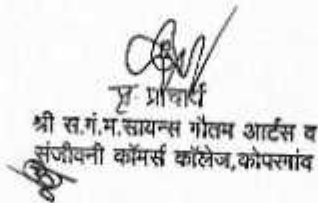 प्र. प्राचार्य
श्री स.गं.म.सायन्स गौतम आर्टस व
संजीवनी कॉमर्स कॉलेज,कोपरगांव